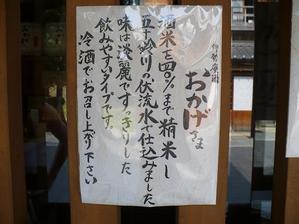 伊勢参宮
おかげさま
酒米を四〇%まで精米し
五十鈴川の伏流水で仕込みました
味は淡麗ですっきりした
飲みやすいタイプです。
冷酒でお召し上り下さい